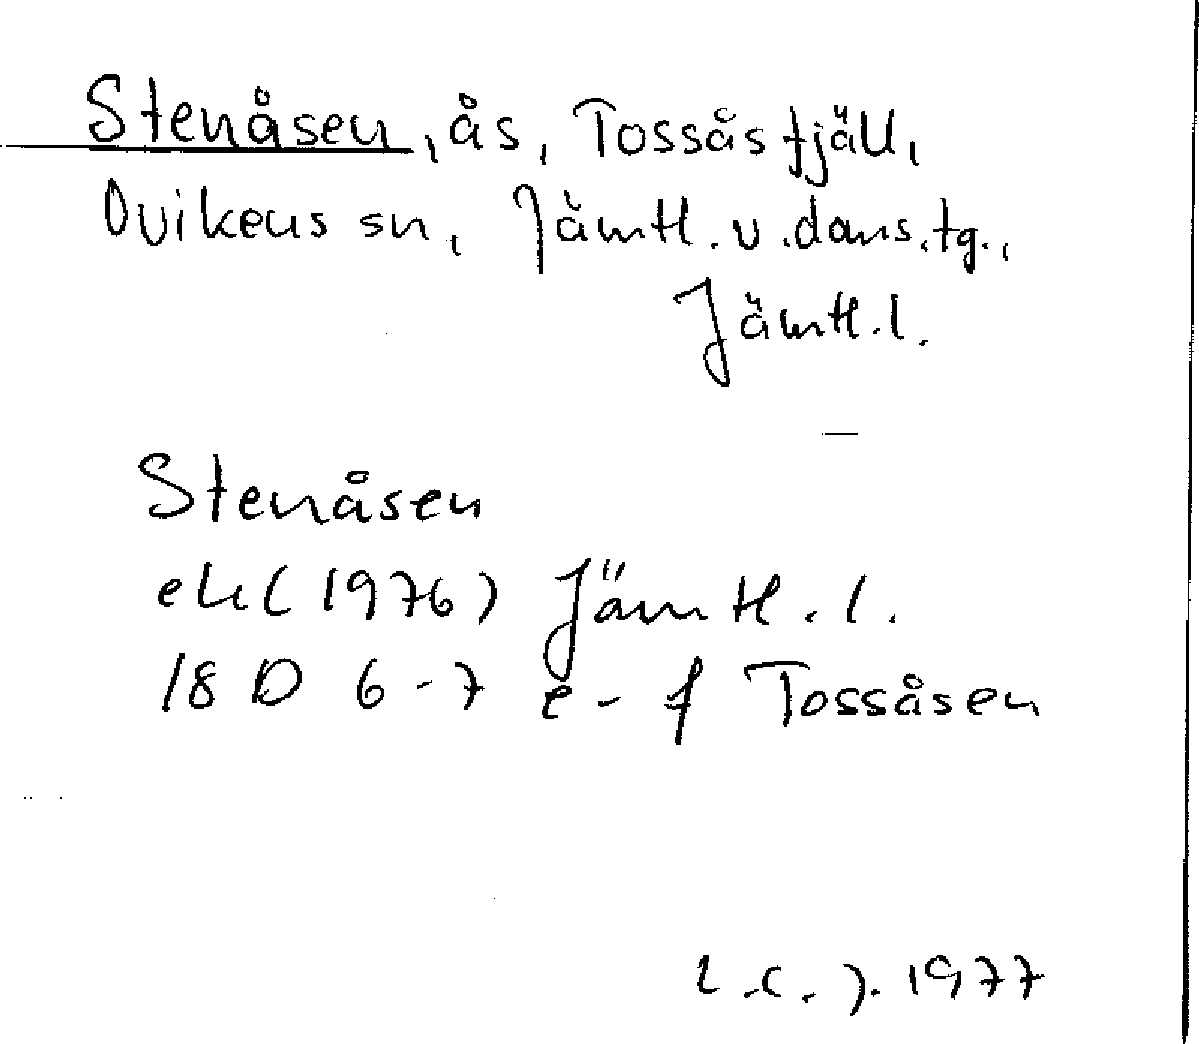 Stenåsen, ås, Tossåsfjäll,
Ovikens sn, Jämtl. v. doms.tg.,
Jämtl.l.
Stenåsen
ek (1976) Jämtl.l.
18 D 6-7 e-f Tossåsen
L.C.J. 1977